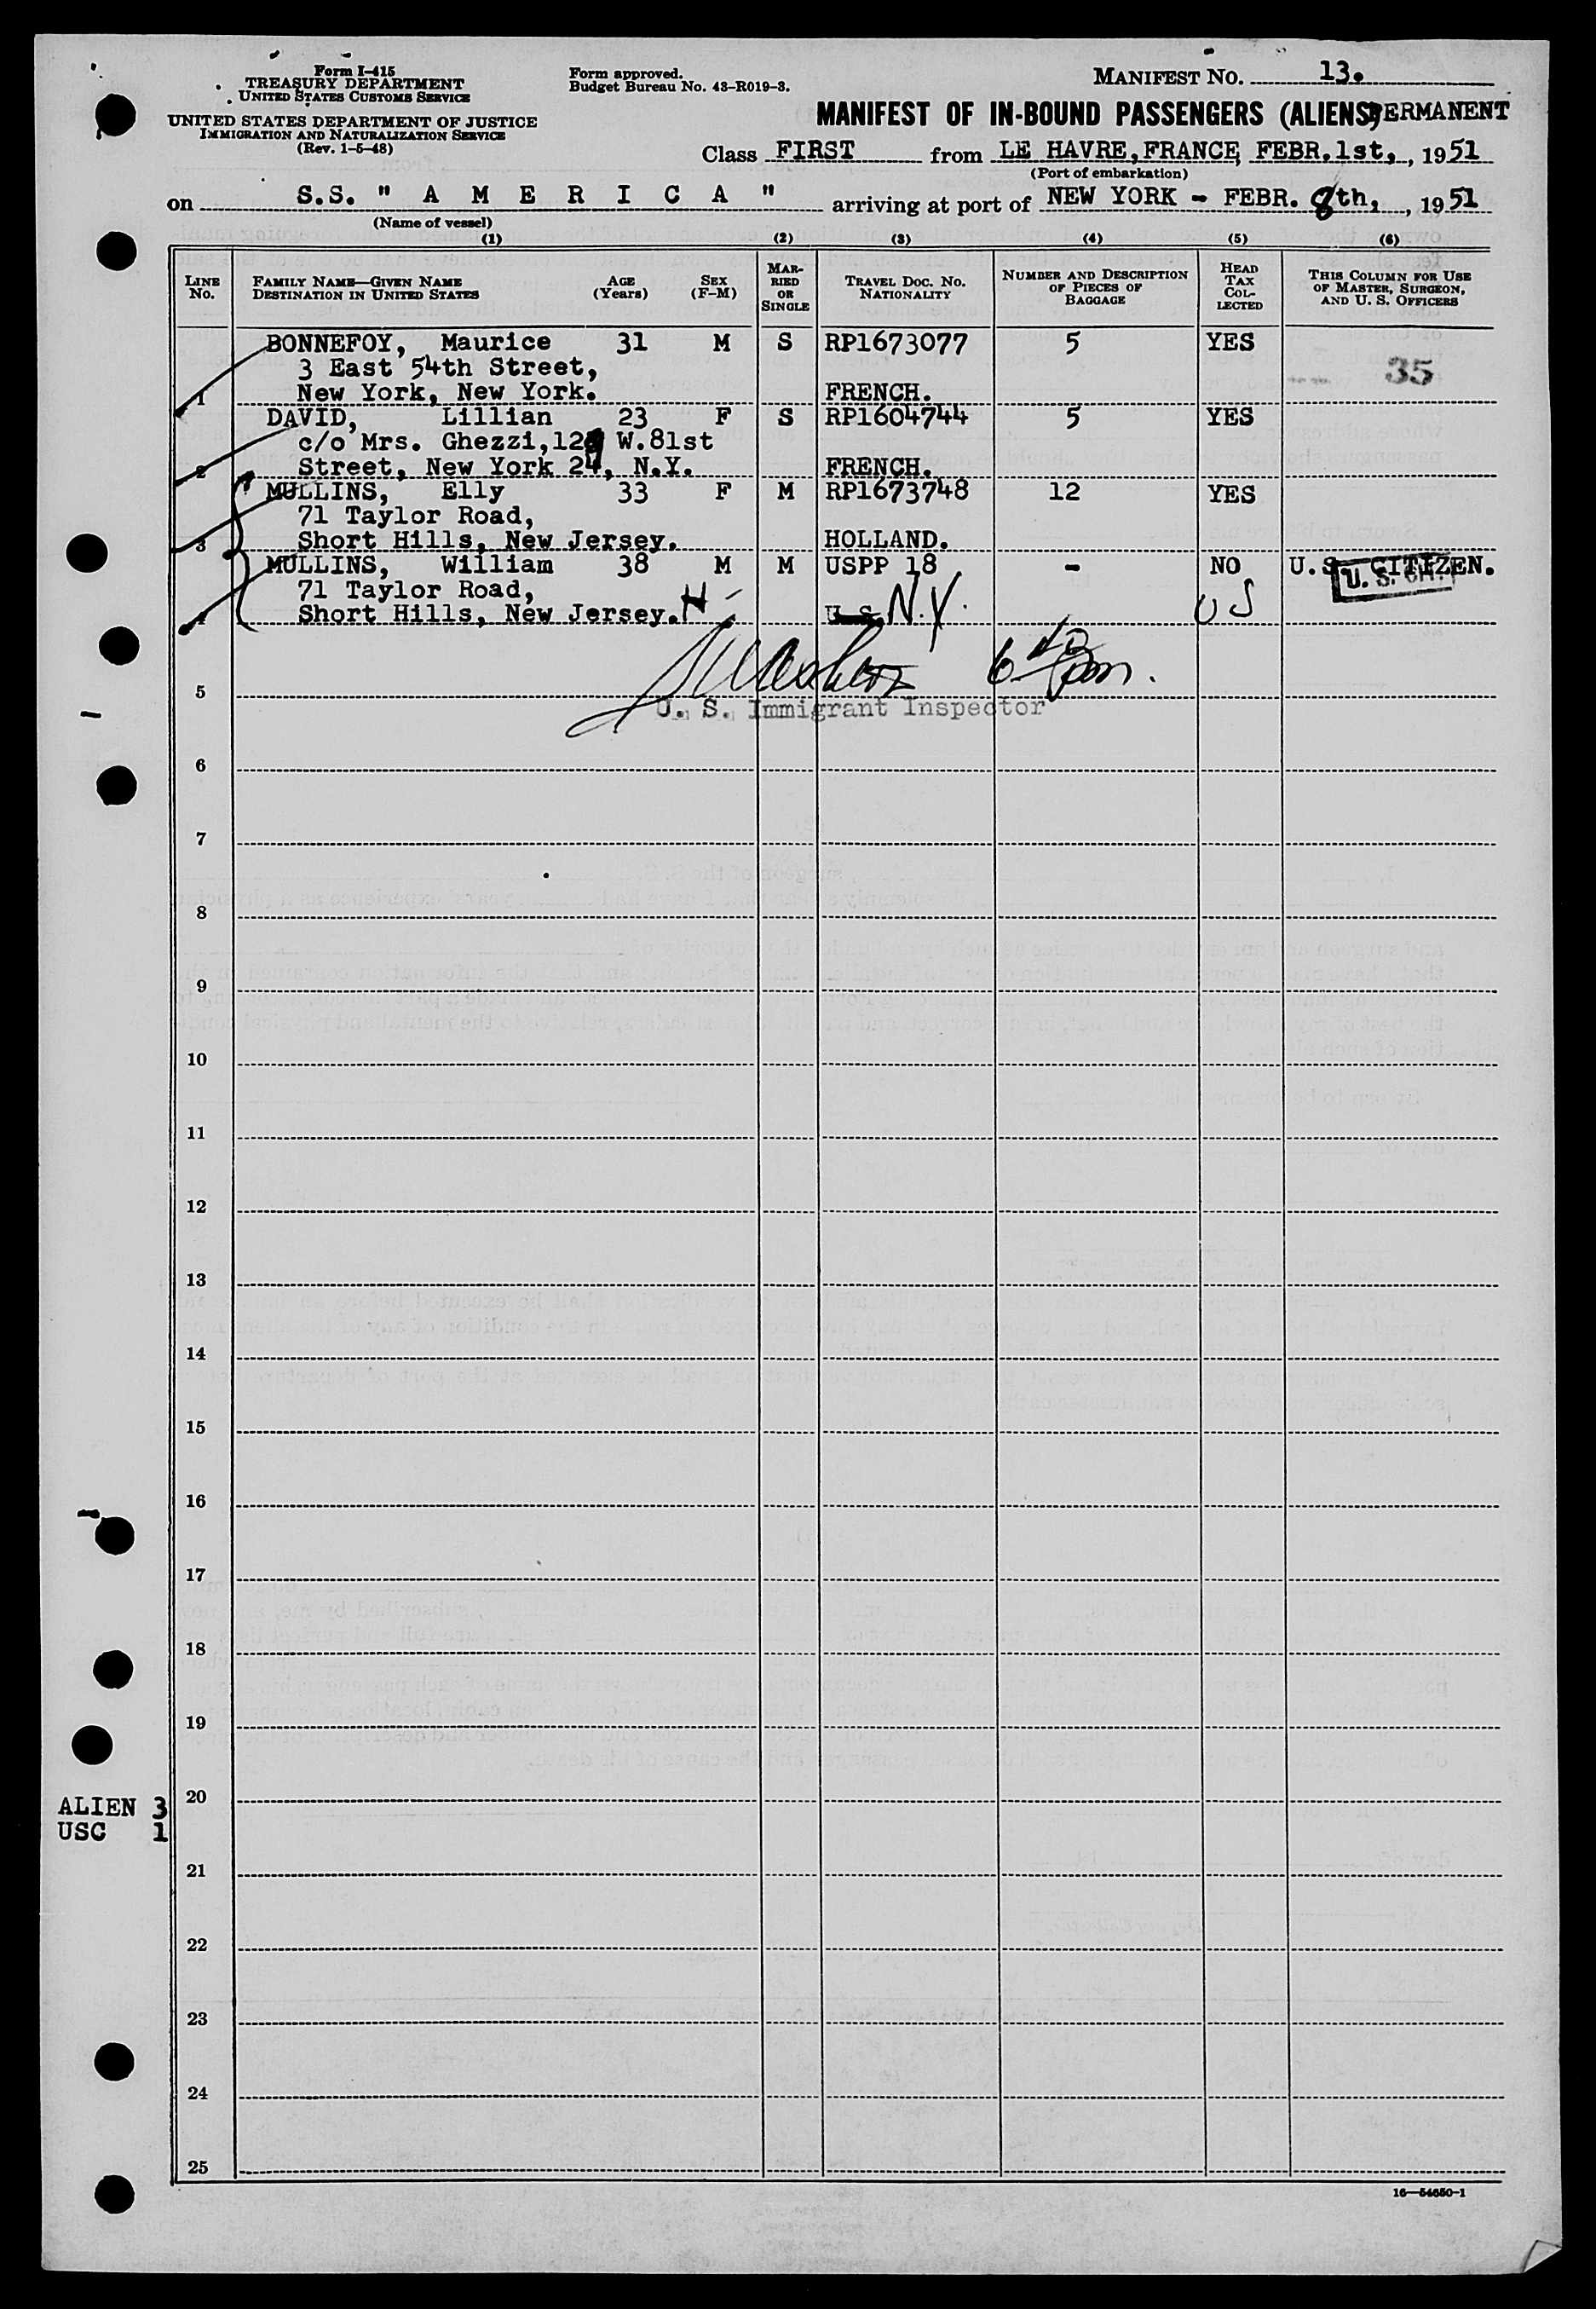 Form I-415
TREASURY DEPARTMENT
UNITED STATES CUSTOMS SERVICE
UNITED STATES DEPARTMENT OF JUSTICE
IMMIGRATION AND NATURALIZATION SERVICE
(Rev. 1-5-48)
Form approved.
Budget Bureau No. 43-R019-3.
MANIFEST NO. 13.
MANIFEST OF IN-BOUND PASSENGERS (ALIENS) PERMANENT
Class FIRST from LE HAVRE, FRANCE, FEBR. 1st, , 1951
(Port of embarkation)
on S.S. " A M E R I C A " arriving at port of NEW YORK - FEBR. 8th, , 1951
(Name of vessel)
(1) (2) (3) (4) (5) (6)
LINE No. FAMILY NAME—GIVEN NAME DESTINATION IN UNITED STATES AGE (Years) SEX (F-M) MARRIED OR SINGLE TRAVEL DOC. NO. NATIONALITY NUMBER AND DESCRIPTION OF PIECES OF BAGGAGE HEAD TAX COLLECTED THIS COLUMN FOR USE OF MASTER, SURGEON, AND U. S. OFFICERS
BONNEFOY, Maurice 31 M S RP1673077 5 YES
3 East 54th Street, 35
1 New York, New York. FRENCH.
DAVID, Lillian 23 F S RP1604744 5 YES
c/o Mrs. Ghezzi, 129 W.81st
2 Street, New York 24, N.Y. FRENCH.
MULLINS, Elly 33 F M RP1673748 12 YES
71 Taylor Road,
3 Short Hills, New Jersey. HOLLAND.
MULLINS, William 38 M M USPP 18 - NO U.S. CITIZEN.
71 Taylor Road, U. S. CIT.
4 Short Hills, New Jersey. H- U.S. N.Y. US
6 40 pm.
5
U. S. Immigrant Inspector
6
7
8
9
10
11
12
13
14
15
16
17
18
19
ALIEN 3 20
USC 1
21
22
23
24
25
16—54650-1